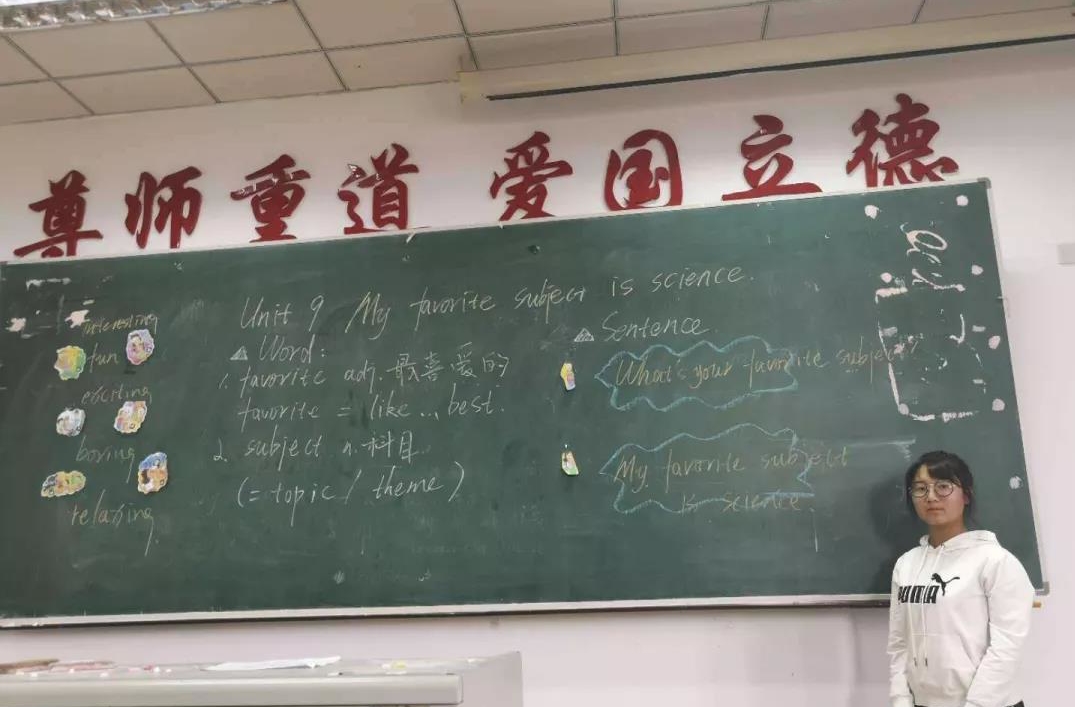 尊师重道 爱国立德
Unit 9 My favorite subject is science.
interesting
fun
exciting
boring
relaxing
Word:
1. favorite adj. 最喜爱的
favorite = like... best.
2. subject n. 科目
(= topic / theme)
Sentence
What's your favorite subject?
My favorite subject
is science.
PUMA